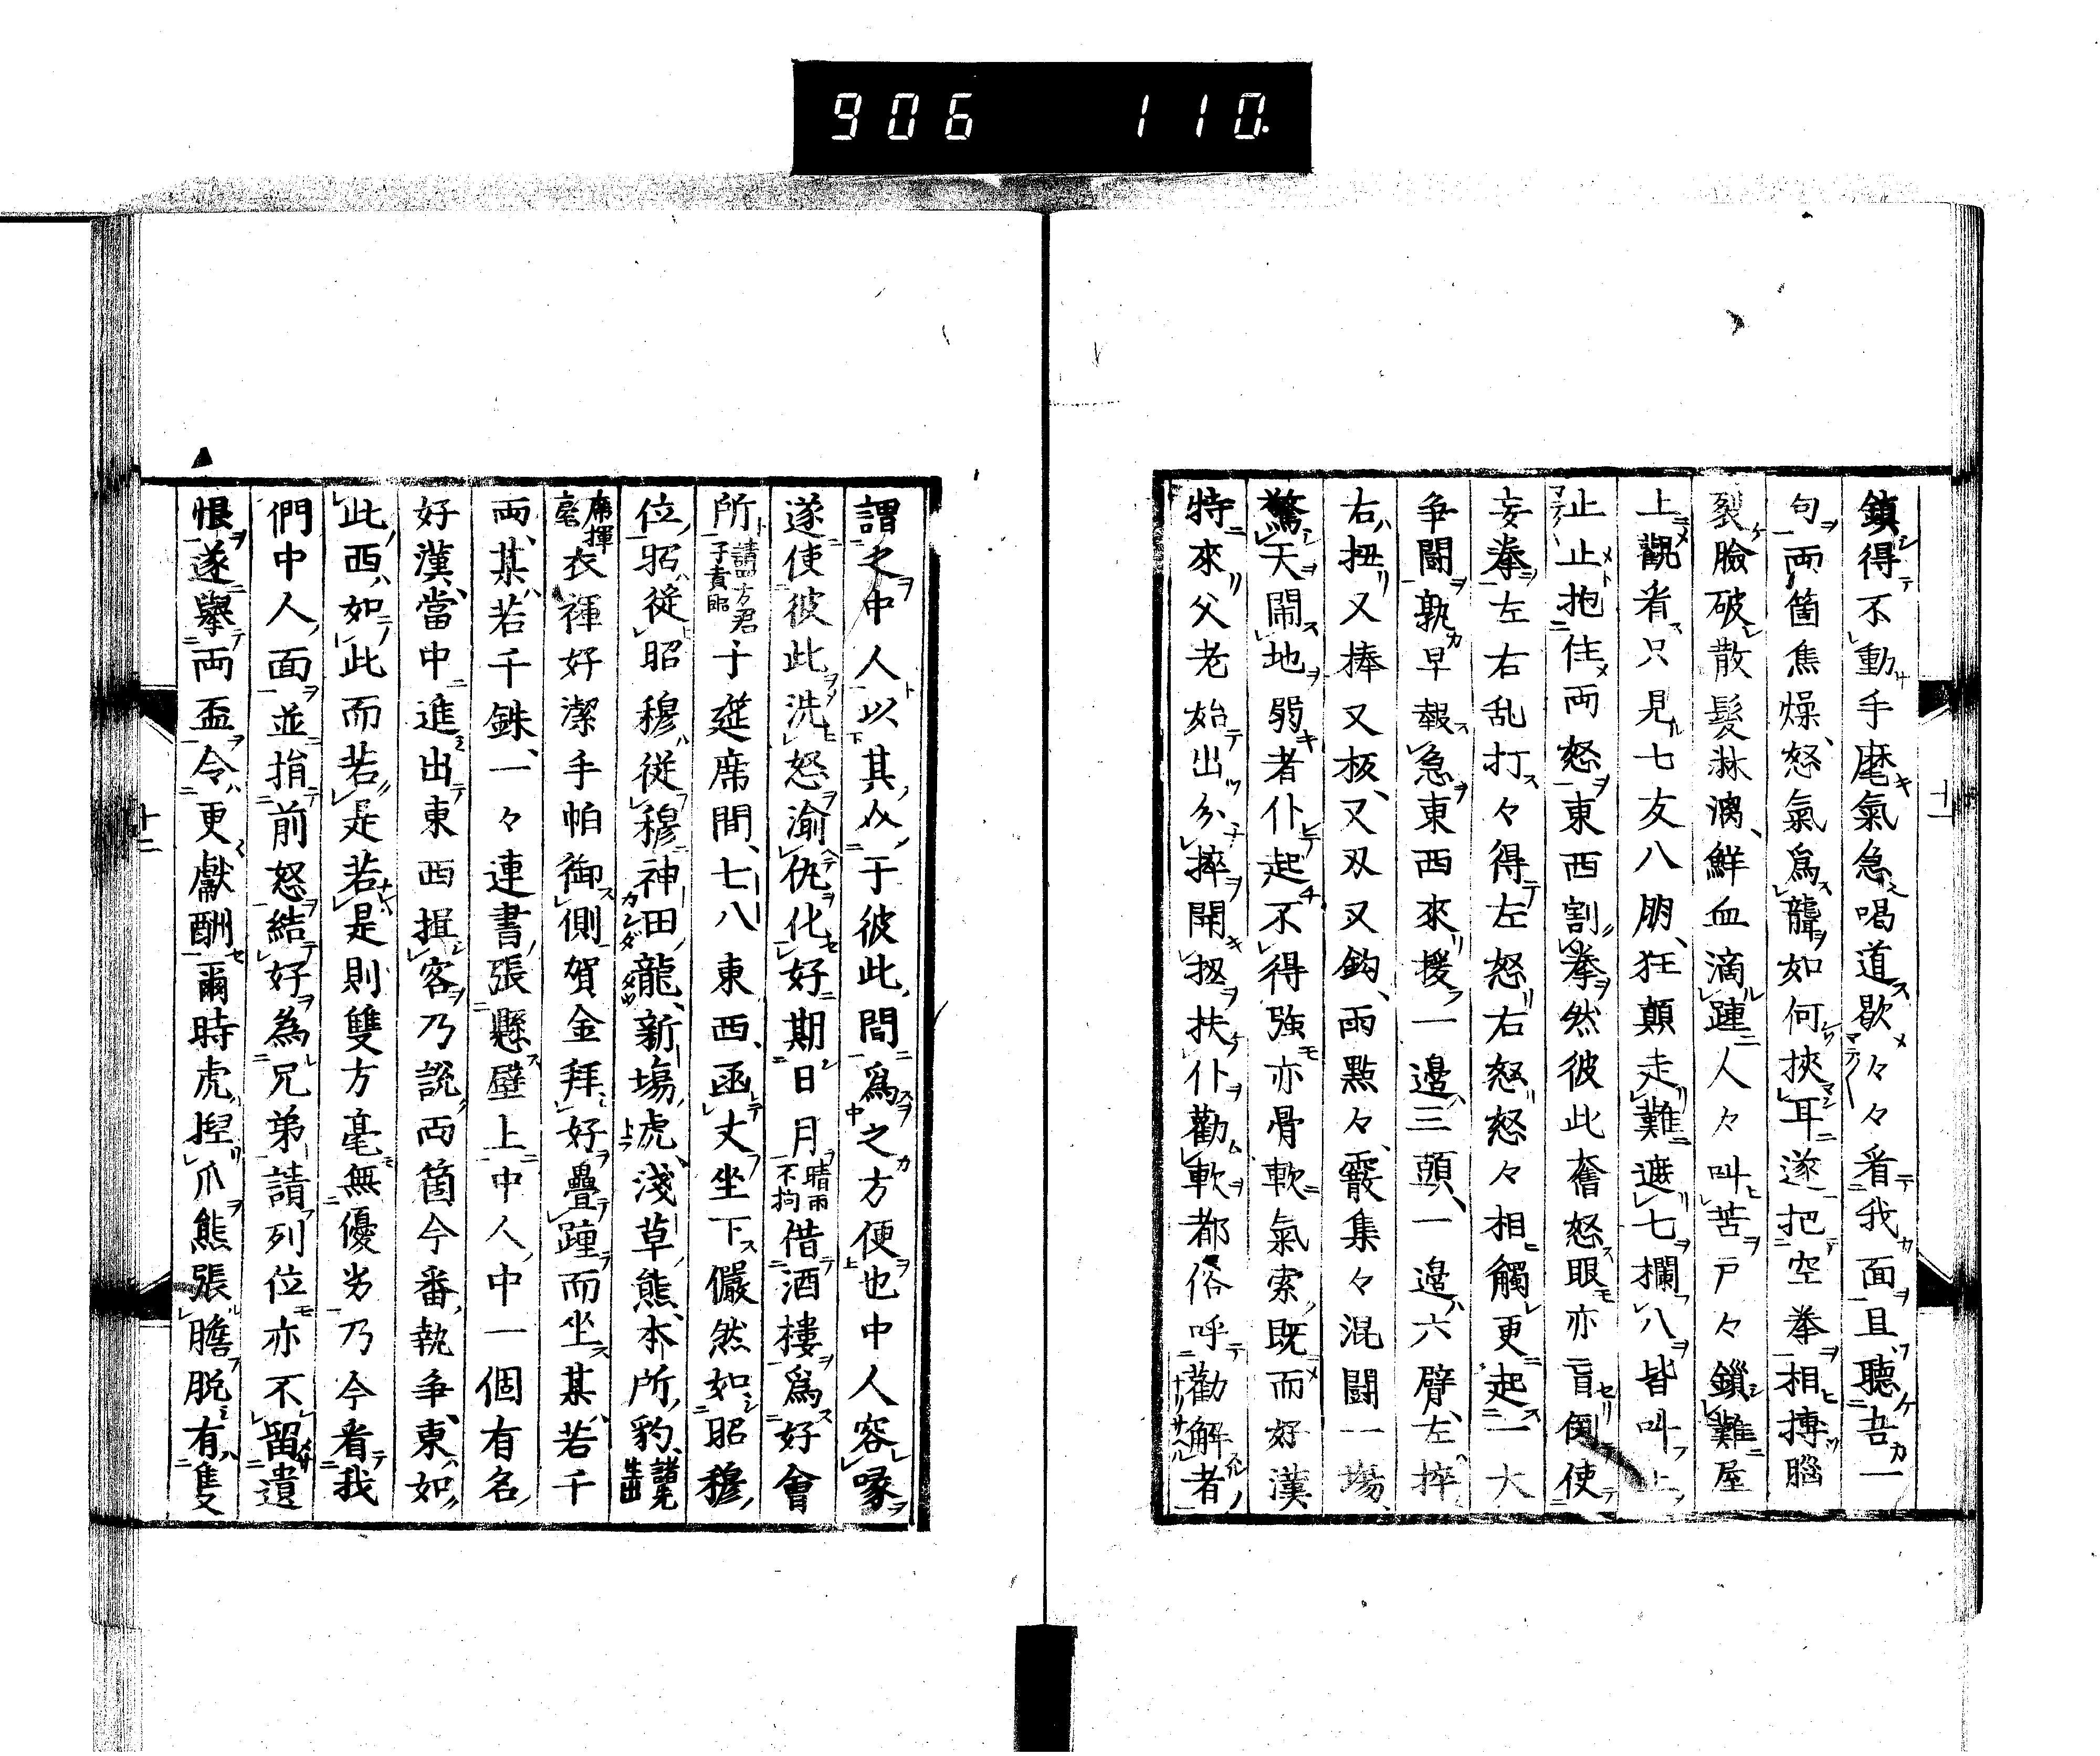 906 110
十一
鎮得不動手麾氣急喝道歇々々看我面且聽吾一
句両箇焦燥怒氣爲聾如何挾耳遂把空拳相搏腦
裂臉破散髮淋漓鮮血滴踵人々叫苦戸々鎖難屋
上觀看只見七友八朋狂顛走難遮七欄八皆叫上
止止抱住両怒東西割拳然彼此奮怒眼亦盲倒使
妄拳左右乱打々得左怒右怒怒々相觸更起一大
争鬪孰早報急東西來援一邉三頭一邉六臂左捽
右扭又捧又扳又刄又鈎兩點々霰集々混鬪一場
驚天閙地弱者仆起不得強亦骨軟氣索既而好漢
特來父老始出分捽開扭扶仆勸軟都俗呼勸解者
謂之中人以其从于彼此間爲之方便也中人容喙
遂使彼此洗怒渝仇化好期日月晴雨不拘借酒樓爲好會
所請四方君子責臨于莚席間七八東西函丈坐下儼然如昭穆
位昭從昭穆從穆神田龍新塲虎淺草熊本所豹諸先生出
席揮毫衣褌好潔手帕御側賀金拜好疊踵而坐某若千
両某若千銖一々連書張懸壁上中人中一個有名
好漢當中進出東西揖客乃説両箇今番執争東如
此西如此而若是若是則雙方毫無優劣乃今看我
們中人面並捐前怒結好為兄弟請列位亦不留遺
恨遂擧両盃令更獻酬爾時虎㧙爪熊張膽脱有隻
十二